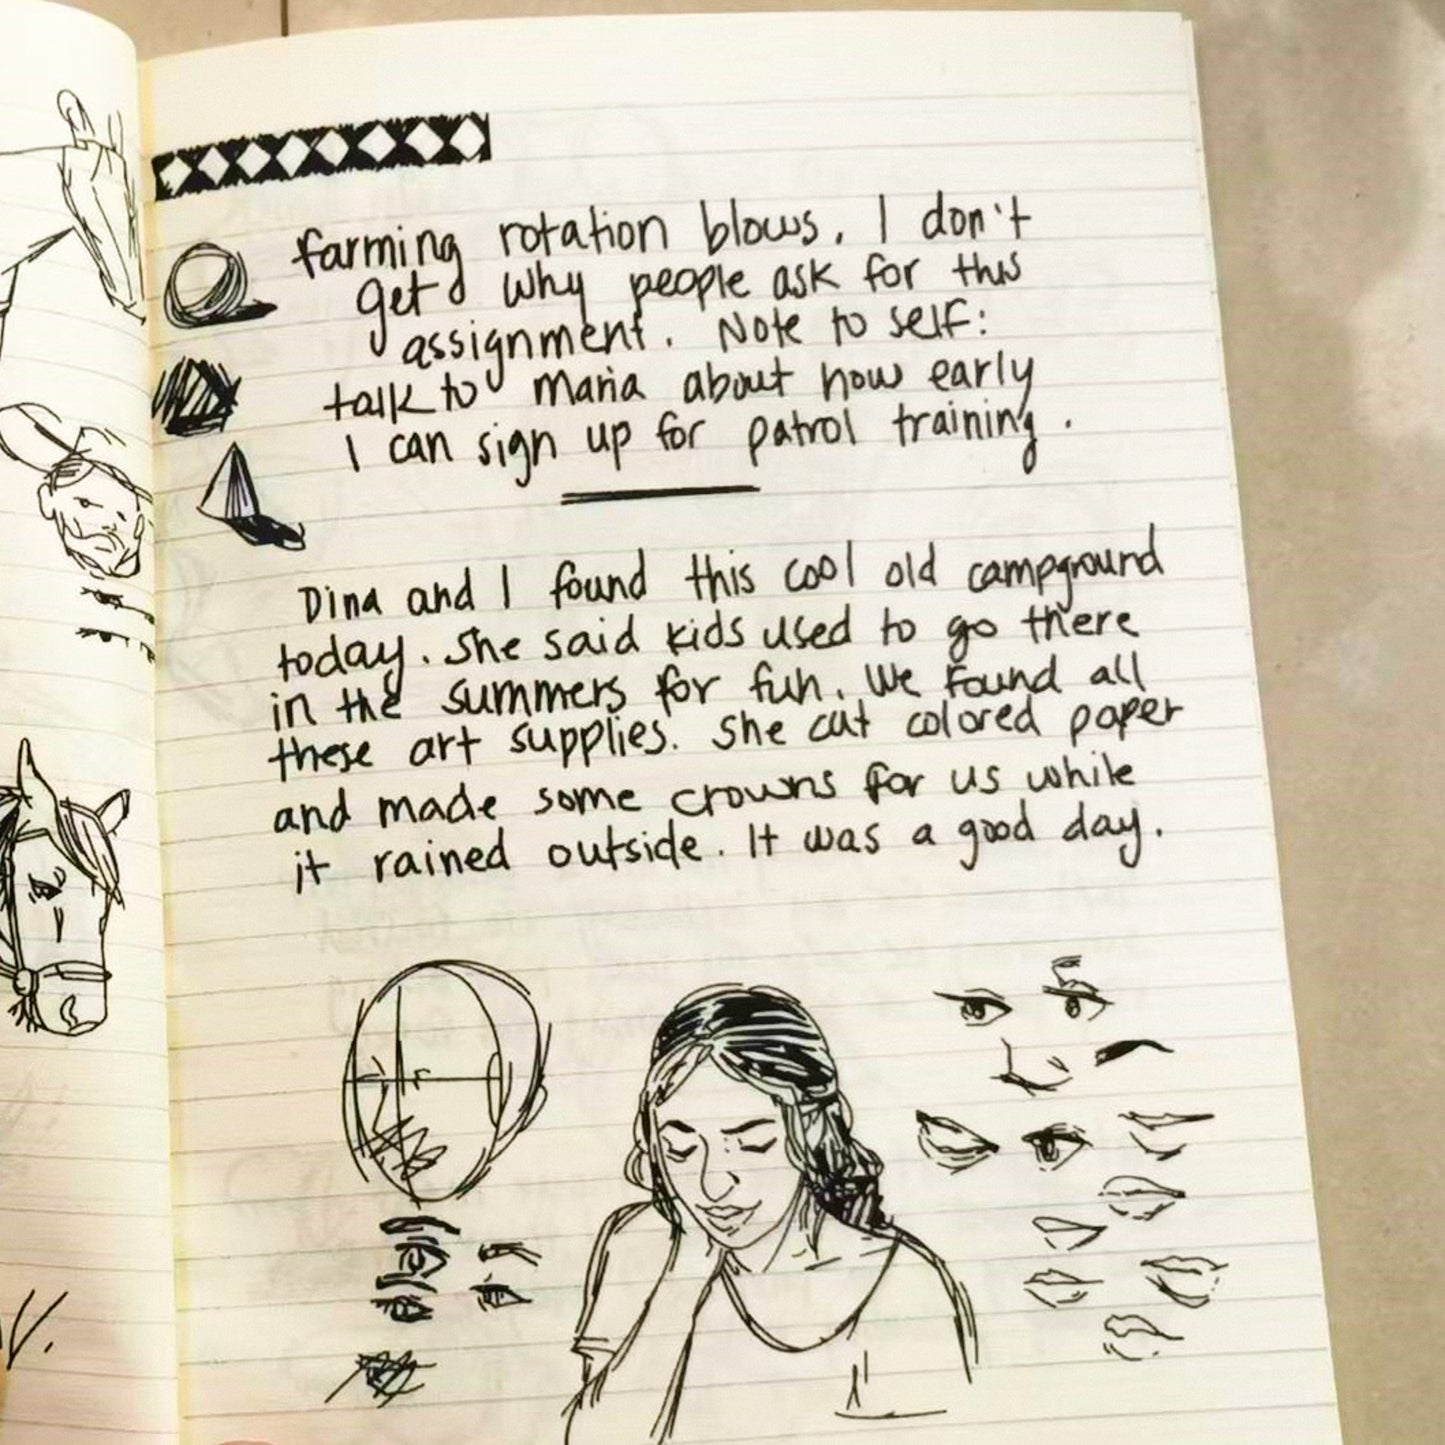 farming rotation blows. I don't
get why people ask for this
assignment. Note to self:
talk to Maria about how early
I can sign up for patrol training.
Dina and I found this cool old campground
today. She said kids used to go there
in the summers for fun. We found all
these art supplies. She cut colored paper
and made some crowns for us while
it rained outside. It was a good day.